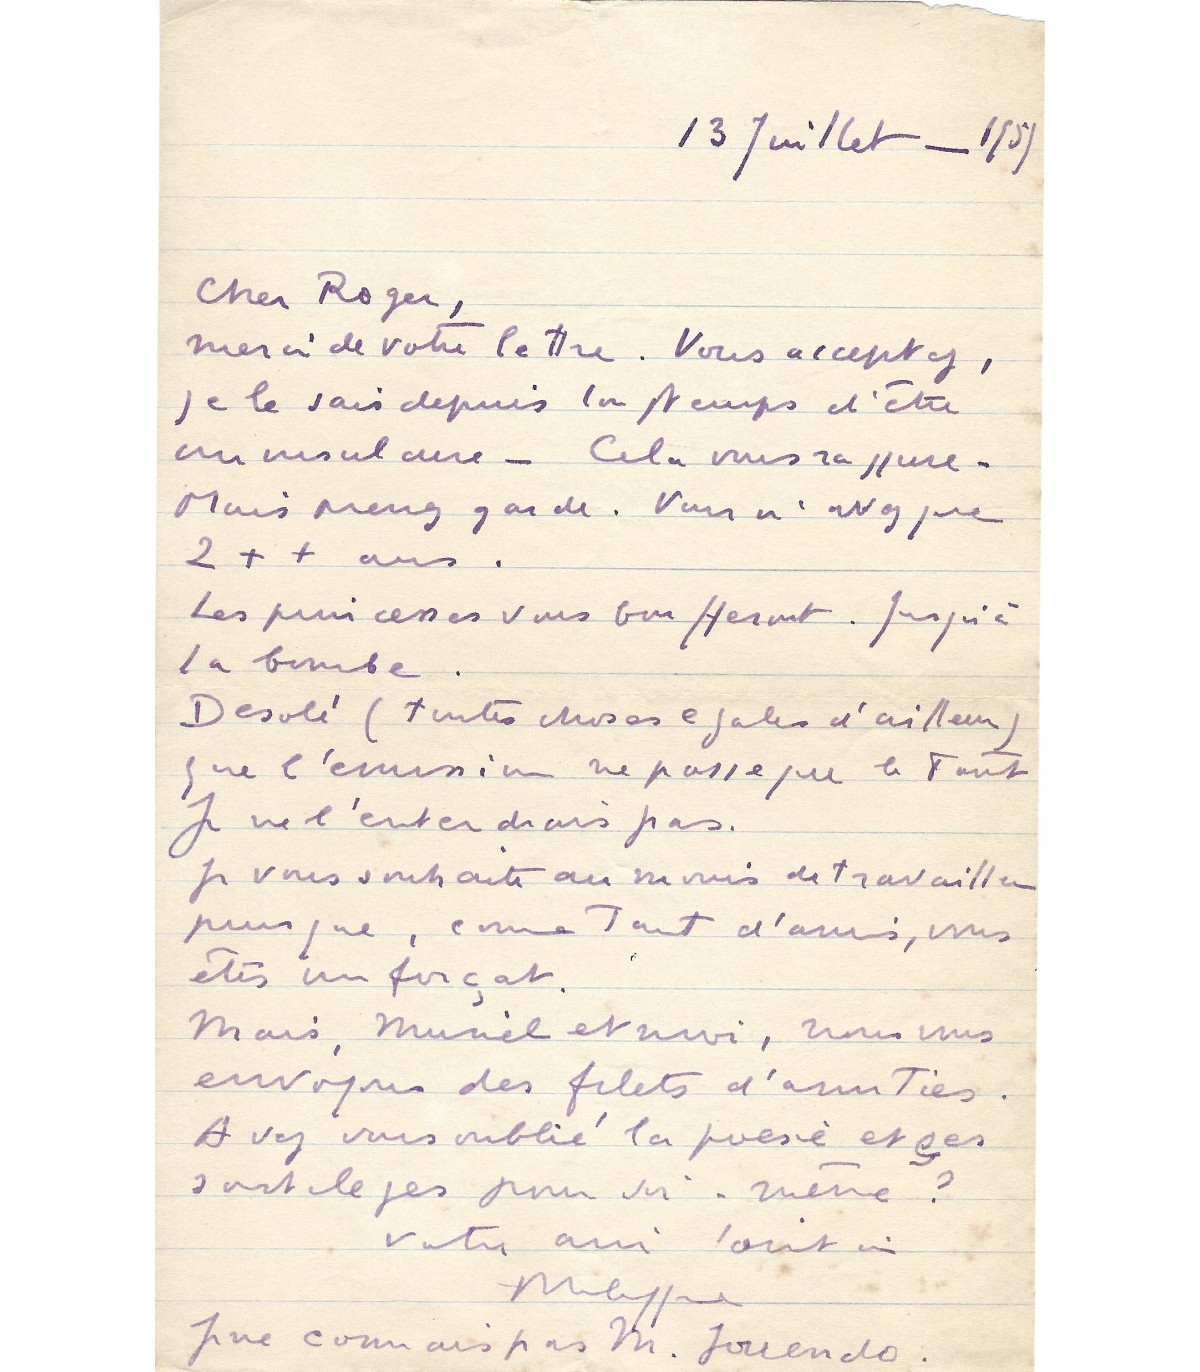 13 Juillet — 195
Cher Roger,
merci de votre lettre. Vous acceptez,
je le sais depuis longtemps d'être
un insulaire — Cela vous rassure -
Mais prenez garde. Vous n'avez que
2 + + ans.
Les princesses vous boufferont. Jusqu'à
la bombe.
Desolé (toutes choses egales d'ailleurs)
que l'emission ne passe que le Tantôt
Je ne l'entendrais pas.
Je vous souhaite au moins de travailler
puisque, comme Tant d'amis, vous
êtes un forçat.
Mais, Muriel et moi, nous vous
envoyons des filets d'amitiés.
Avez vous oublié la poesie et ses
sortileges pour soi-même ?
votre ami lointain
Philippe
Je ne connais pas M.